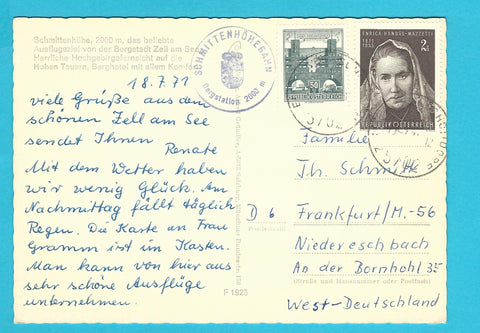 Schmittenhöhe, 2000 m, das beliebte
Ausflugsziel von der Bergstadt Zell am See
Herrliche Hochgebirgsfernsicht auf die
Hohen Tauern, Berghotel mit allem Komfort
18.7.71
viele Grüße aus dem
schönen Zell am See
sendet Ihnen
Renate
Mit dem Wetter haben
wir wenig Glück. Am
Nachmittag fällt täglich
Regen. Die Karte an Frau
Gramm ist im Kasten.
Man kann von hier aus
sehr schöne Ausflüge
unternehmen.
SCHMITTENHÖHEBAHN
Bergstation 2000 m
F 1925
D 6
50
REPUBLIK ÖSTERREICH
ENRICA HANDEL-MAZZETTI
1871
1955
2 S
REPUBLIK ÖSTERREICH
5700
Familie
Th. Schmitt
Frankfurt/M.-56
Niedereschbach
An der Bornhohl 35
(Straße und Hausnummer oder Postfach)
West-Deutschland